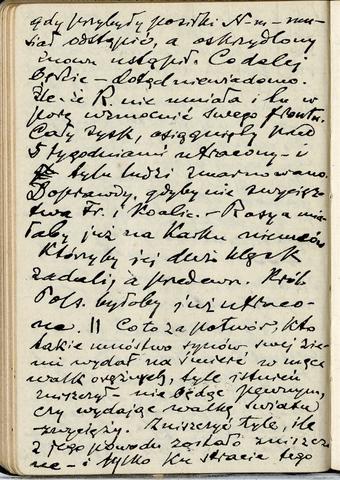 gdy przybyły posiłki N-m - mu-
siał odstąpić, a oskrzydlony
znowu ustąpił. Co dalej
będzie - dotąd niewiadomo.
Źle, że R. nie umiała i tu w
porę wzmocnić swego frontu.
Cały zysk, osiągnięty przed
5 tygodniami utracony - i
tylu ludzi zmarnowano.
Doprawdy, gdyby nie zwycięz-
twa Fr. i Koalic. - Rosya mia-
łaby już na karku niemców
Którzyby jej dużo klęsk
zadali, a przedewn. Król.
Pols. byłoby już utraco-
ne. || Co to za potwór, kto
takie mnóstwo synów swej zie-
mi wydał na śmierć w męce
walk orężnych, tyle istnień
zniszczył - nie będąc pewnym,
czy wydając walkę światu
- zwycięży. Zniszczyć tyle, ile
z jego powodu zostało zniszczo
ne - i tylko ku stracie tego